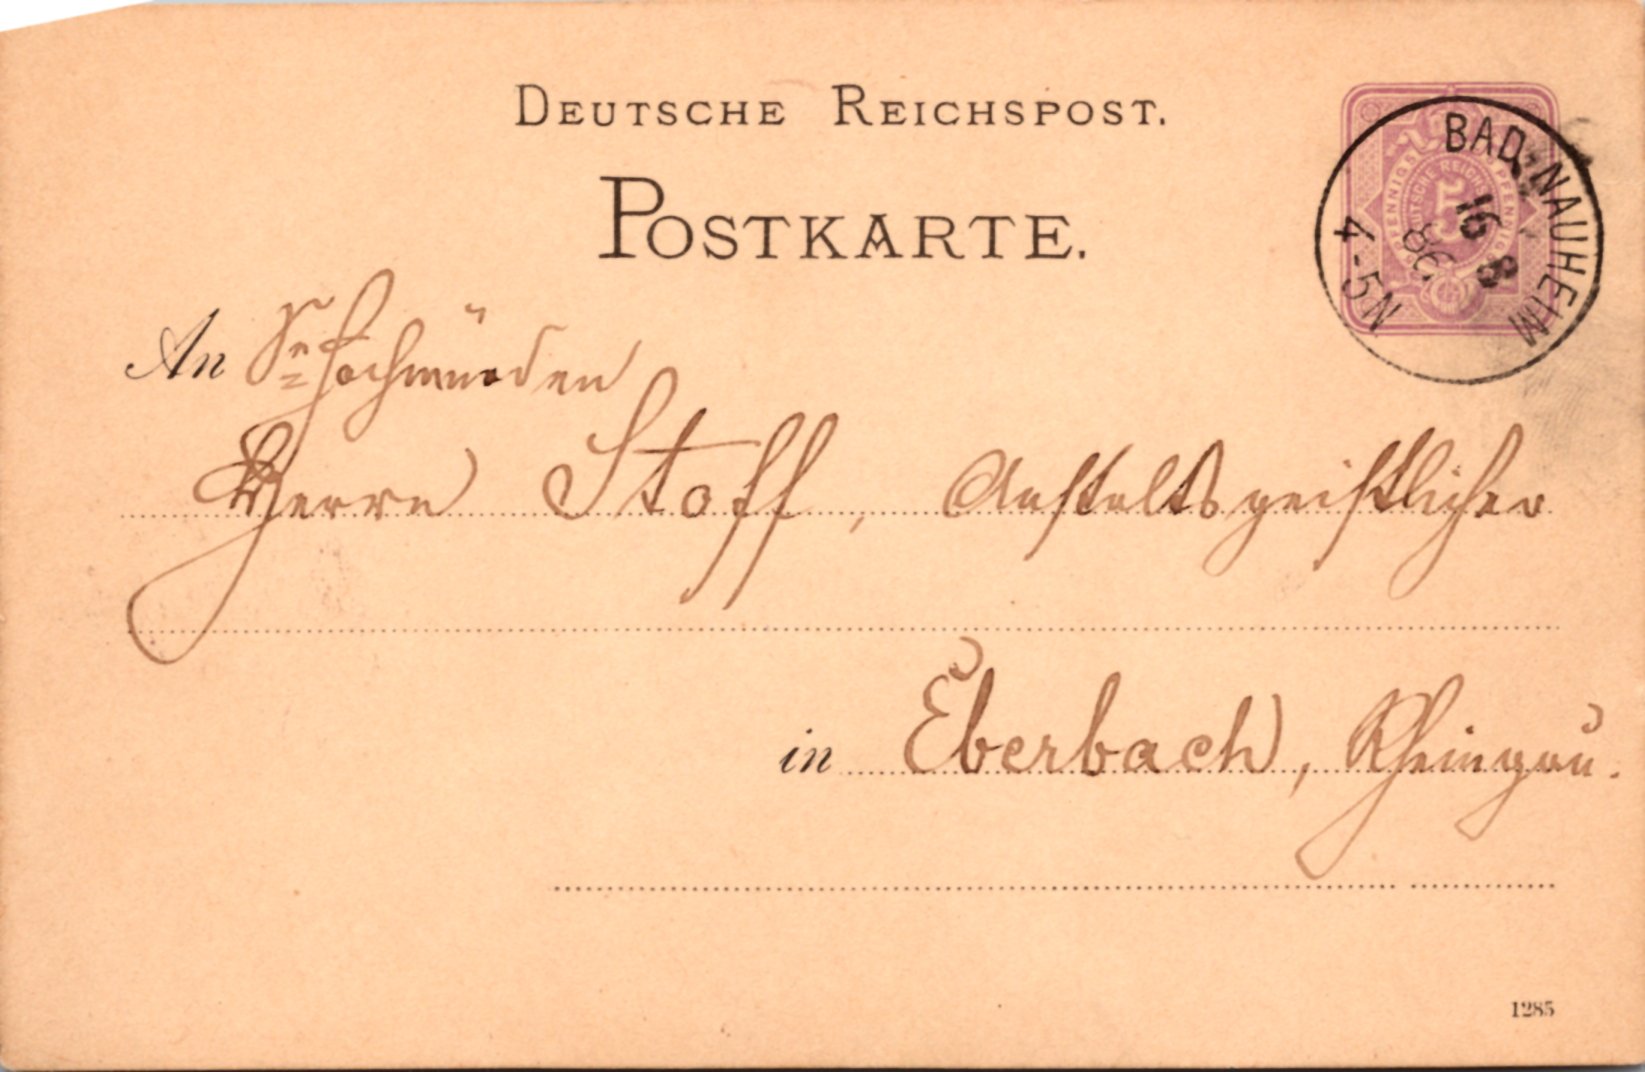 DEUTSCHE REICHSPOST.
POSTKARTE.
5
DEUTSCHE REICHSPOST
PFENNIG
BAD-NAUHEIM
16 8
86
4-5N
An Sr Hochwürden
Herrn Stoff, Anstaltsgeistlicher
in Eberbach, Rheingau.
1285